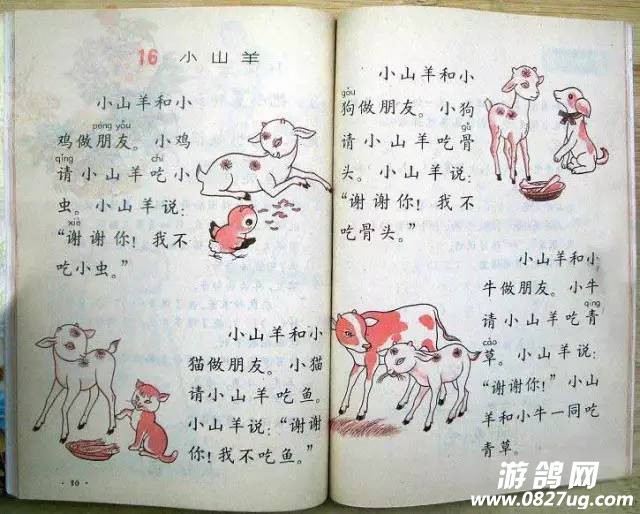 16 小山羊
小山羊和小
péng yǒu
鸡做朋友。小鸡
qǐng chī
请小山羊吃小
虫。小山羊说:
xiè
“谢谢你!我不
吃小虫。”
小山羊和小
猫做朋友。小猫
请小山羊吃鱼。
小山羊说:“谢谢
你!我不吃鱼。”
·90·
小山羊和小
gǒu
狗做朋友。小狗
gǔ
请小山羊吃骨
头。小山羊说:
“谢谢你!我不
吃骨头。”
小山羊和小
牛做朋友。小牛
qīng
请小山羊吃青
cǎo
草。小山羊说:
“谢谢你!”小山
羊和小牛一同吃
青草。
游鸽网
www.0827ug.com